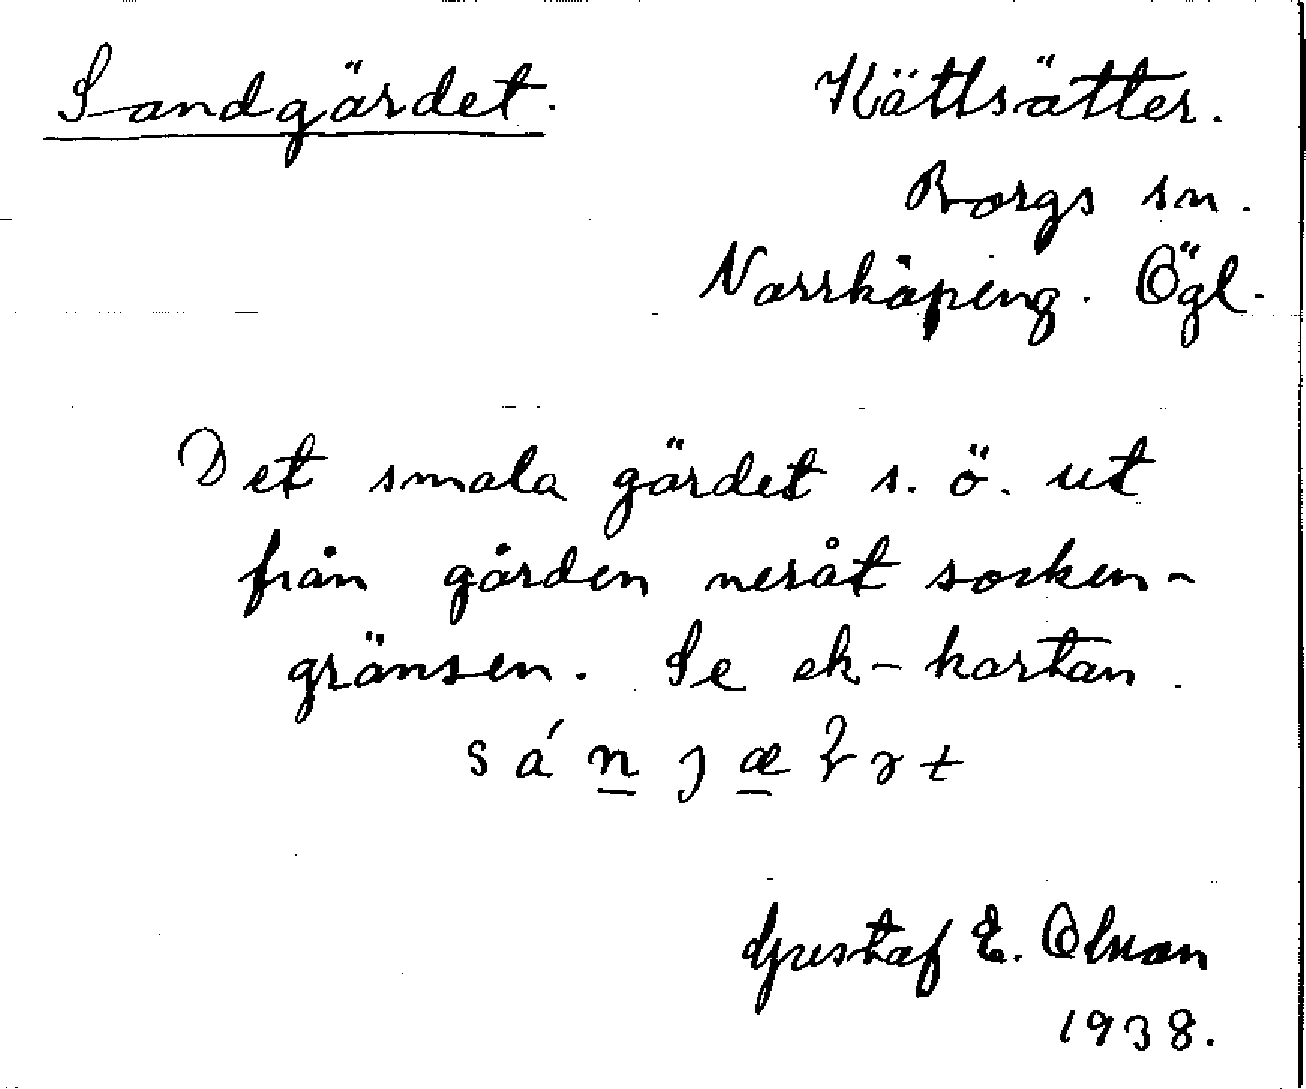 Sandgärdet.
Kättsätter.
Borgs sn.
Norrköping. Ögl.
Det smala gärdet s. ö. ut
från gården neråt socken-
gränsen. Se ek-kartan.
s á n̲ ȷ æ̲
Gustaf E. Olson
1938.